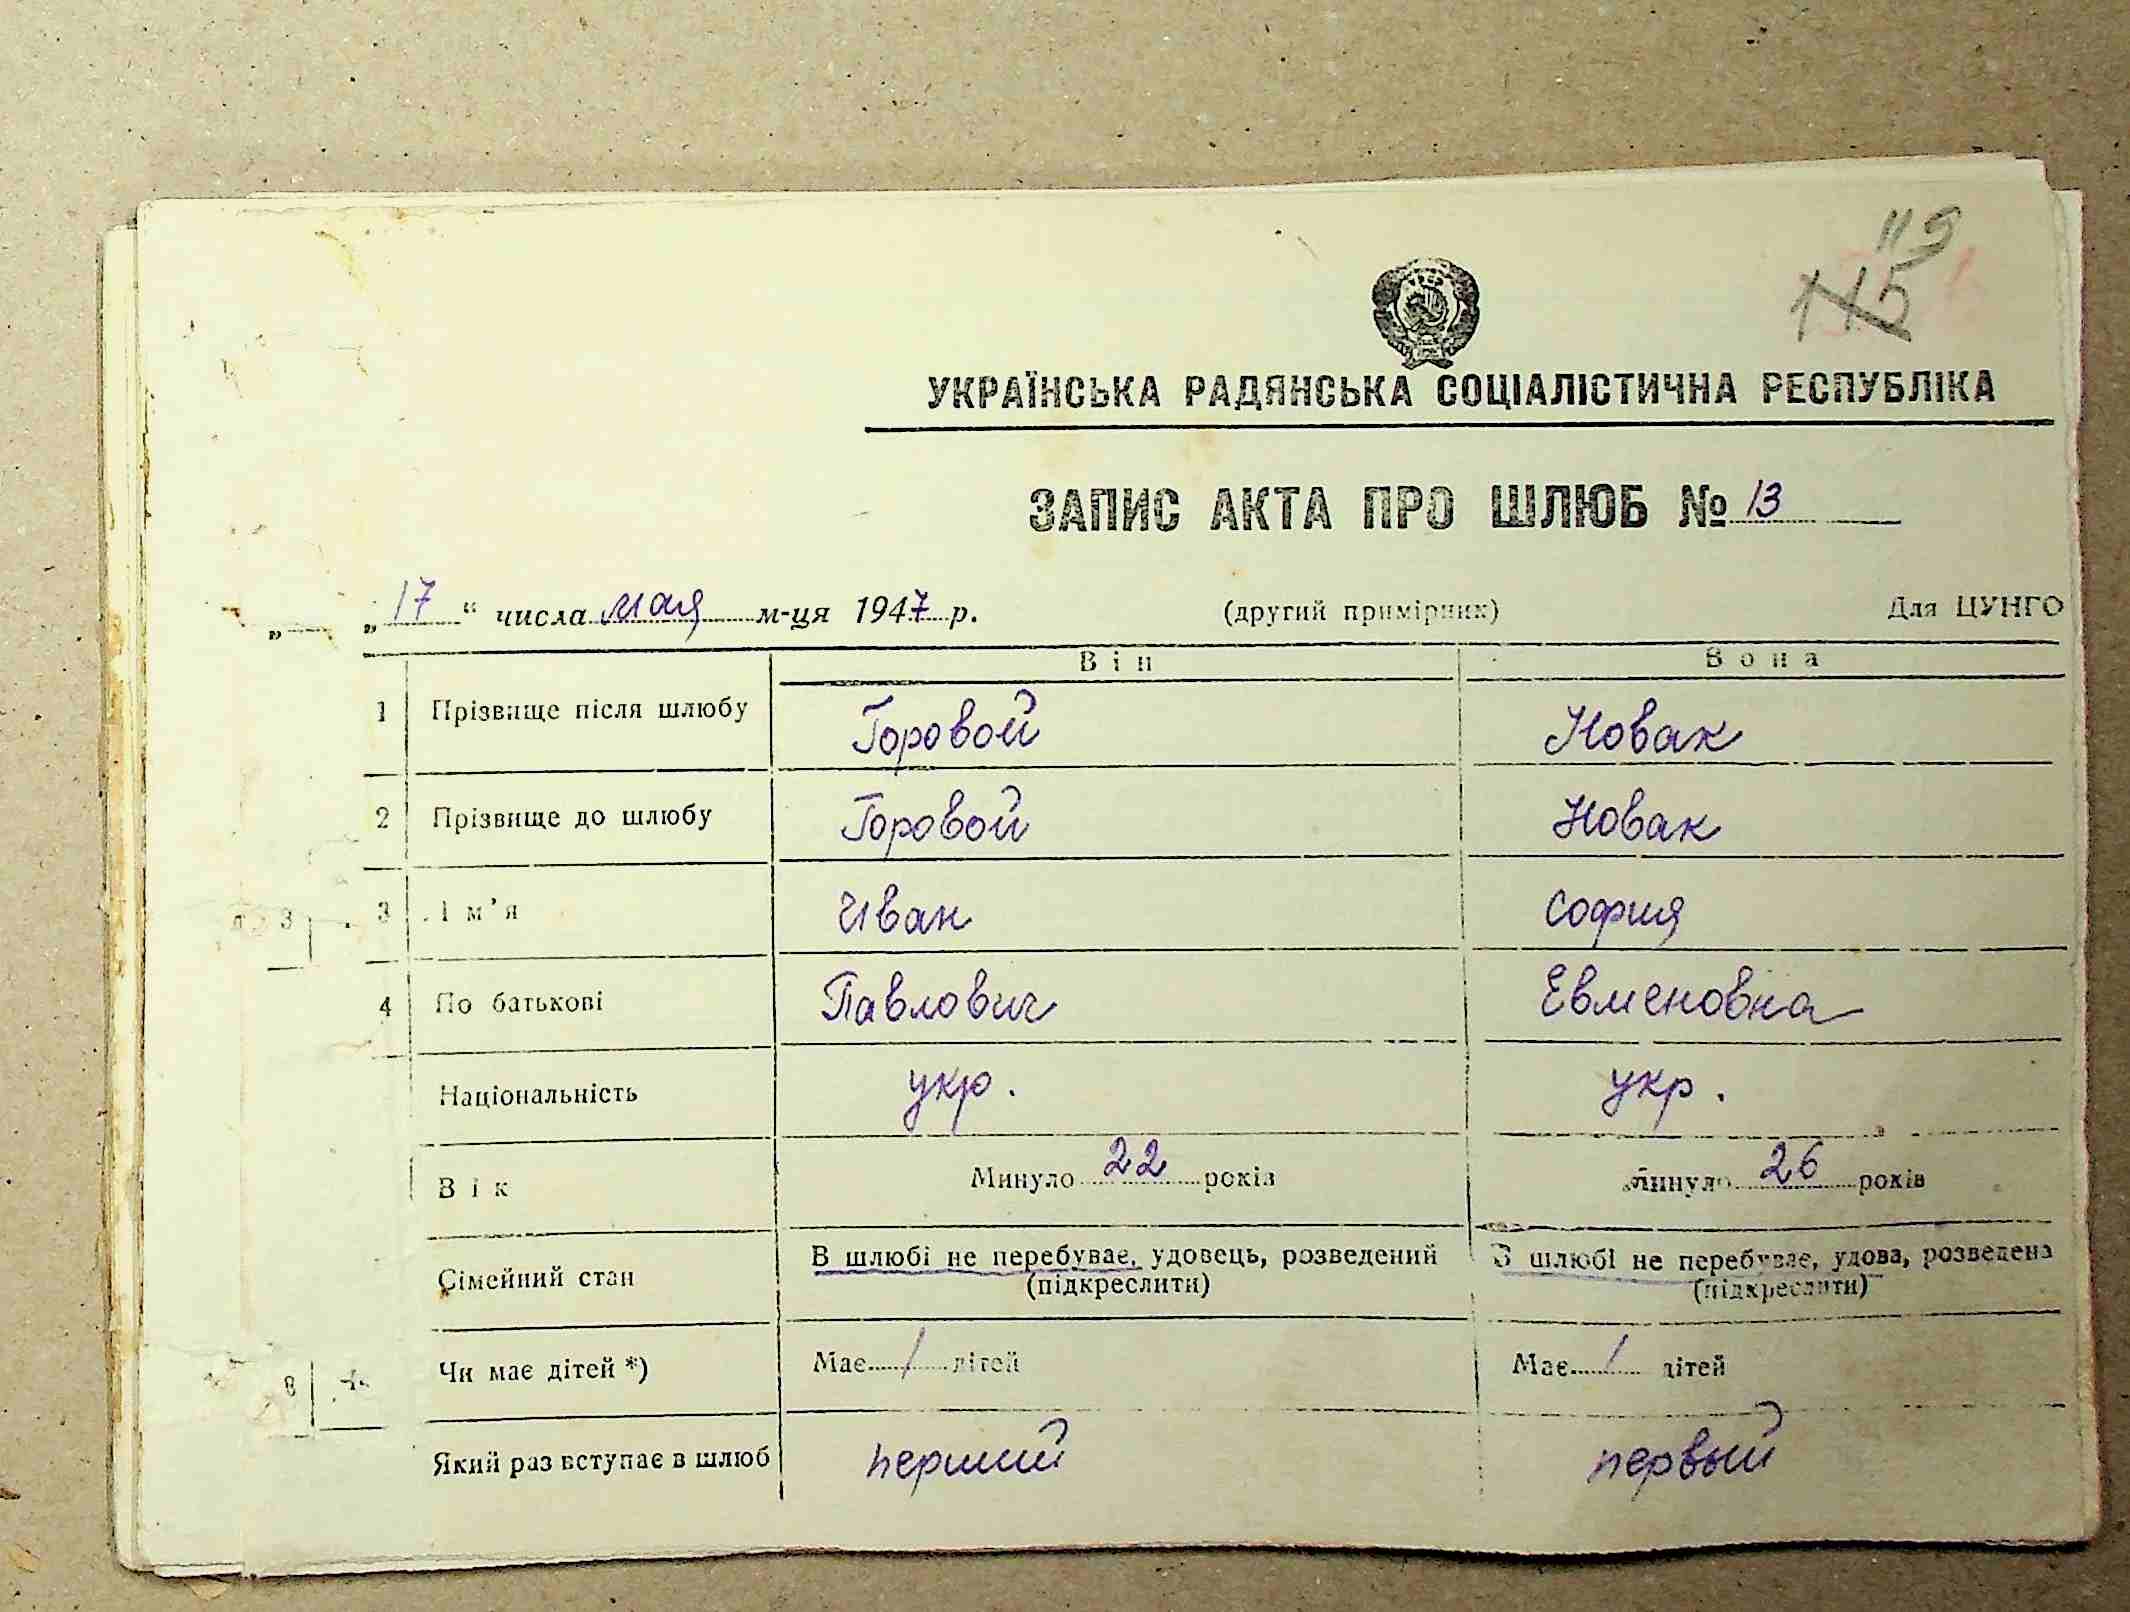 119
115
УКРАЇНСЬКА РАДЯНСЬКА СОЦІАЛІСТИЧНА РЕСПУБЛІКА
ЗАПИС АКТА ПРО ШЛЮБ № 13
„ 17 “ числа мая м-ця 1947 р. (другий примірник) Для ЦУНГО
Він Вона
1 Прізвище після шлюбу Горовой Новак
2 Прізвище до шлюбу Горовой Новак
3 Ім’я Иван София
4 По батькові Павлович Евменовна
Національність укр. укр.
Вік Минуло 22 років Минуло 26 років
Сімейний стан В шлюбі не перебуває, удовець, розведений В шлюбі не перебуває, удова, розведена
(підкреслити) (підкреслити)
8 Чи має дітей *) Має / дітей Має / дітей
Який раз вступає в шлюб перший первый